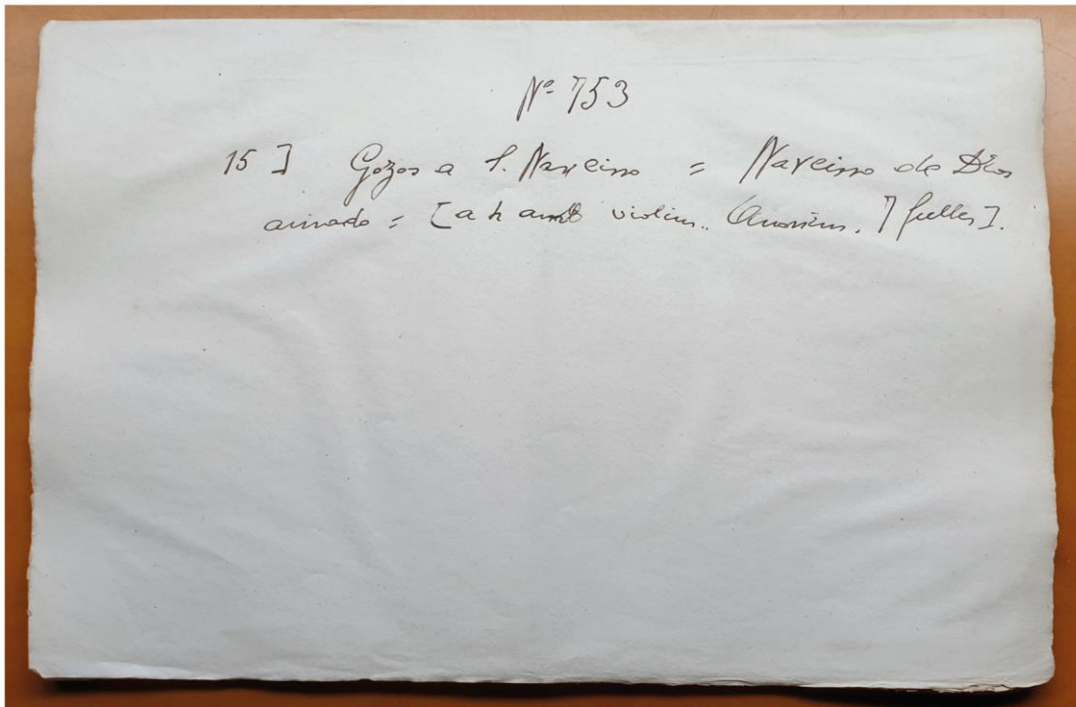 Nº 753
15] Gozos a S. Narciso = Narciso de Dios
amado = [a 4 amb violins. Anònim. 7 fulles].